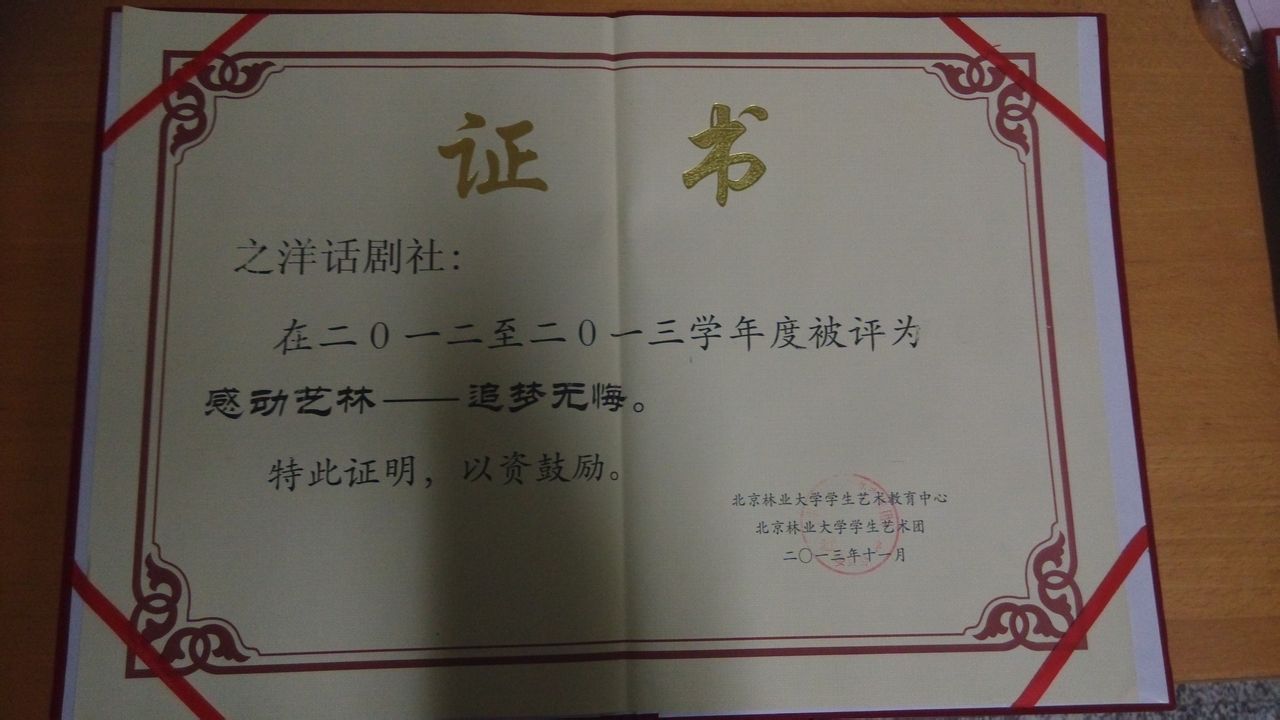 证 书
之洋话剧社：
在二０一二至二０一三学年度被评为
感动艺林——追梦无悔。
特此证明，以资鼓励。
北京林业大学学生艺术教育中心
北京林业大学学生艺术团
二〇一三年十一月